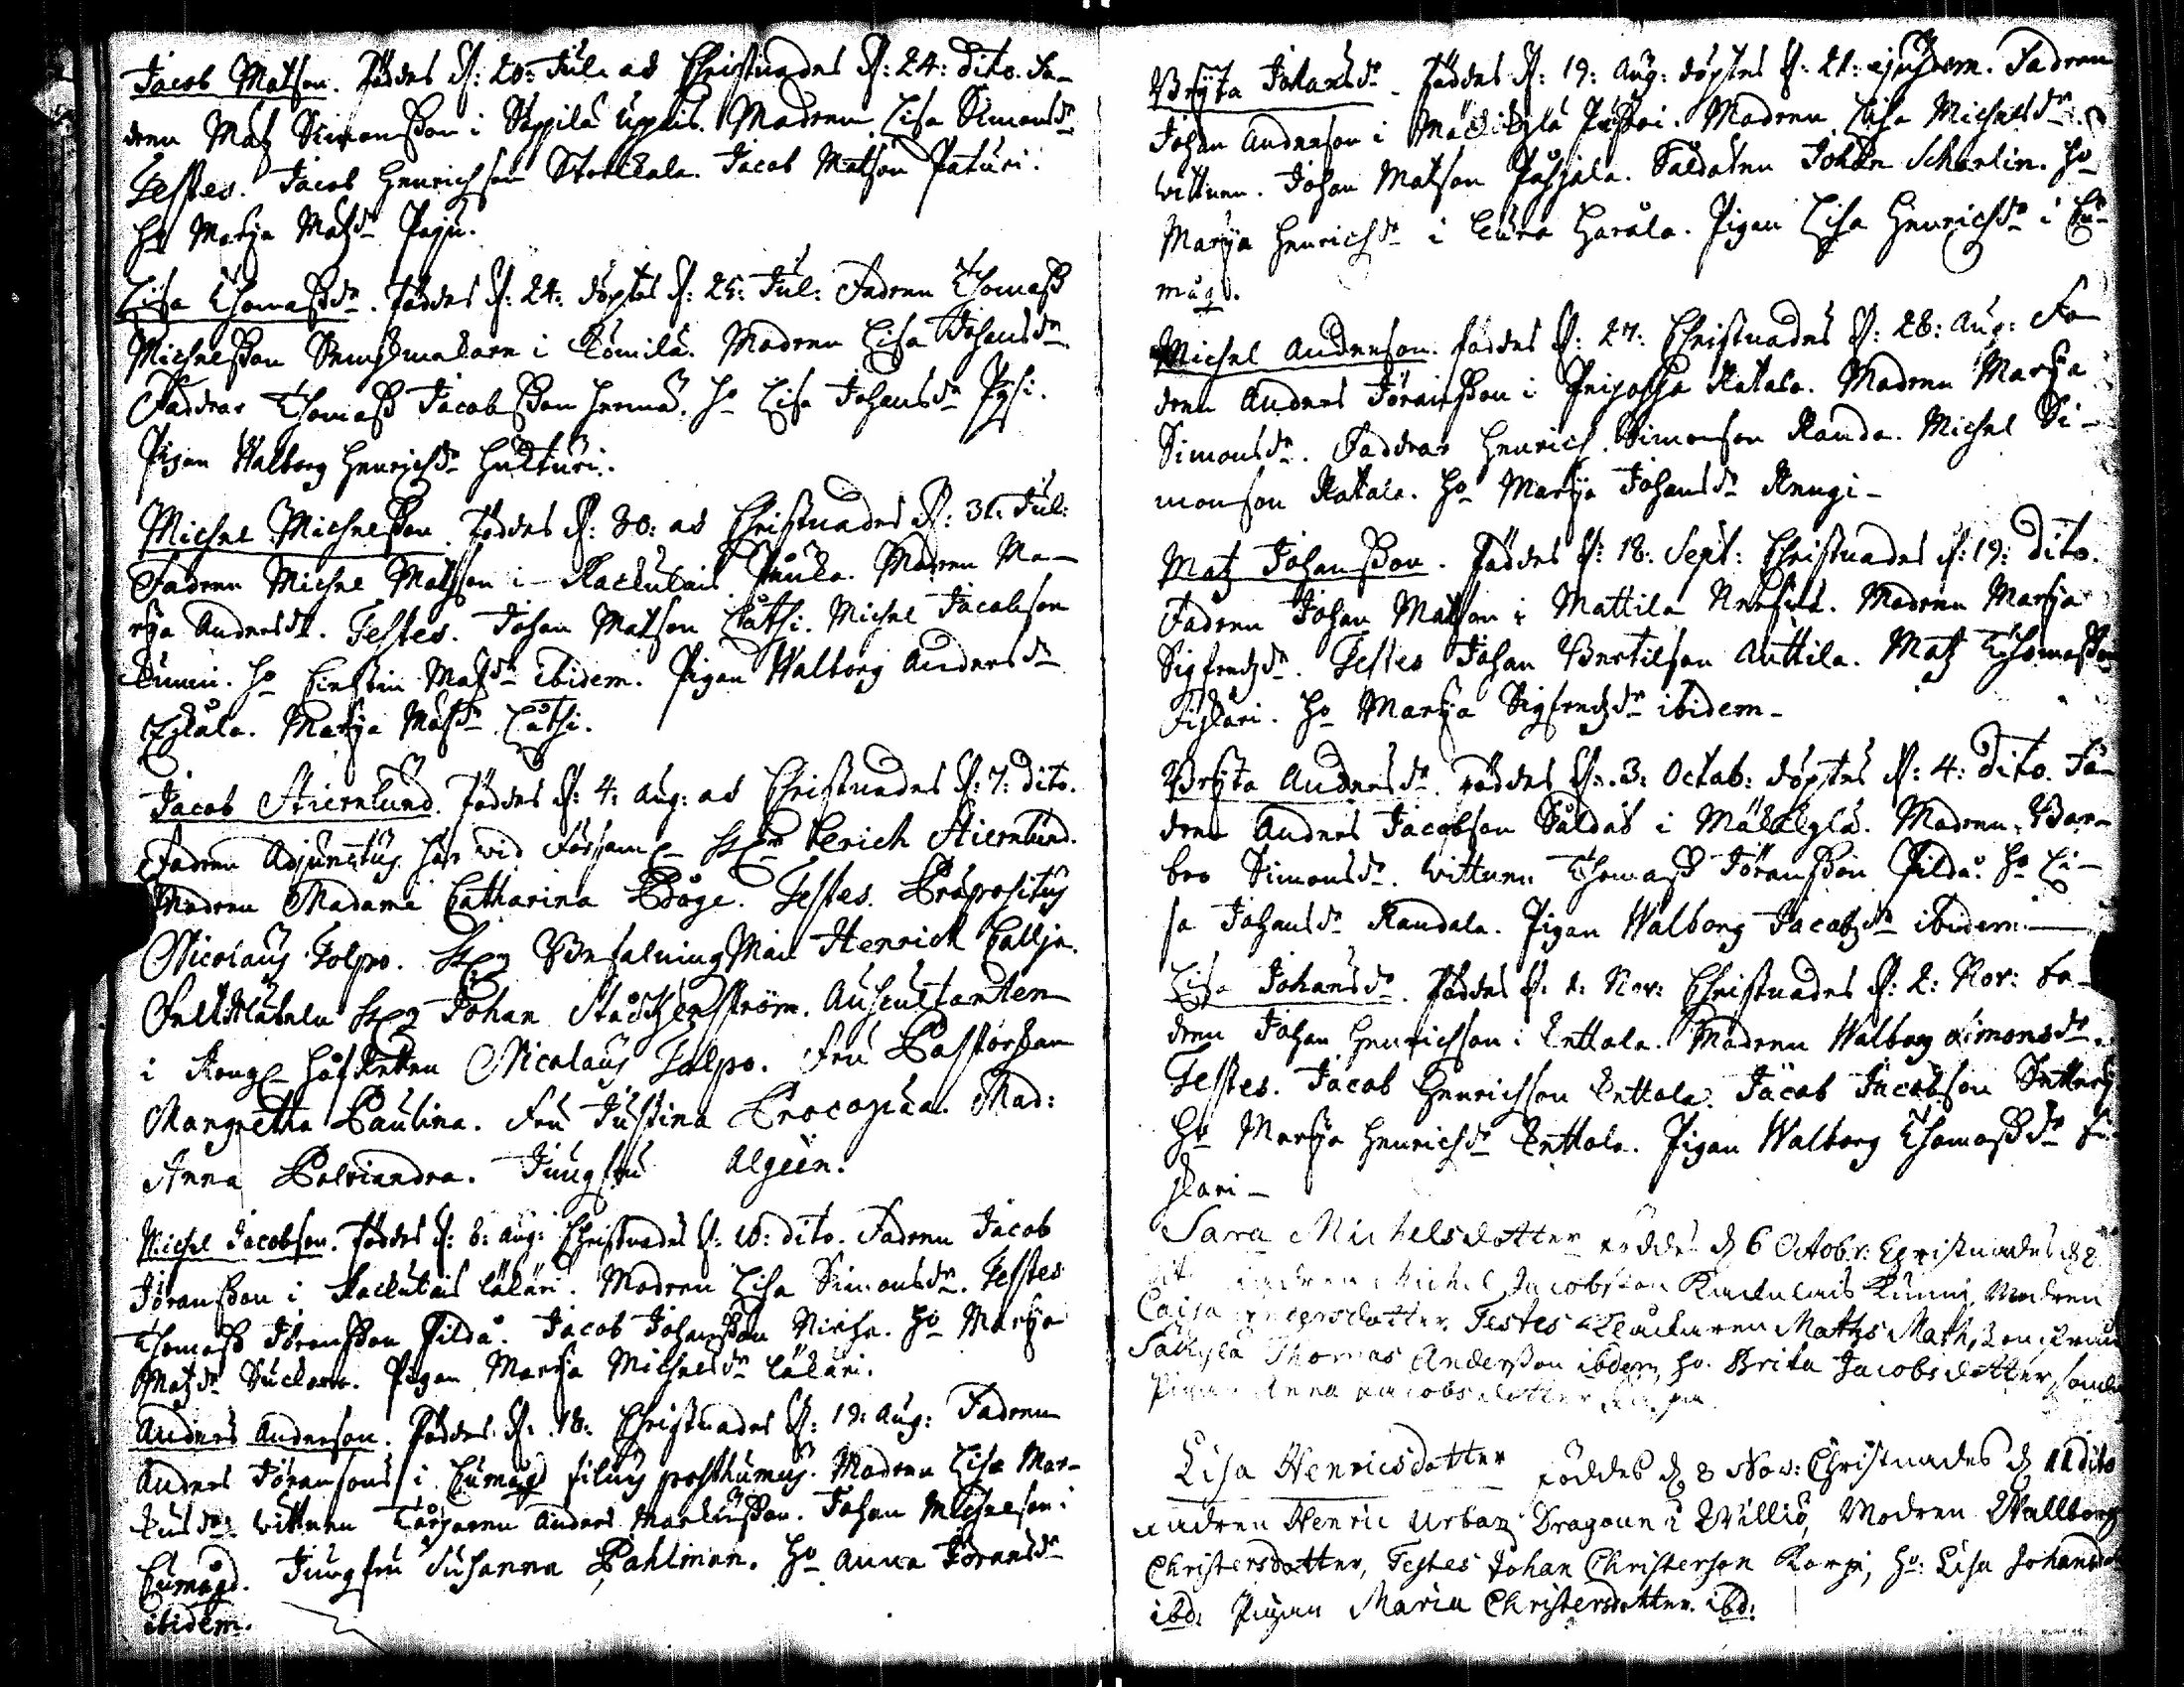 Jacob Matson. Föddes d: 20: Jul. ac Christnades d: 24: dito. Fa-
dren Matz Simonsson i Seppilä Uppis. Modren Lisa Simonsdr
Testes. Jacob Henrichson Stockala. Jacob Matson Paturi.
ho Marja Matzdr Paju.
Lisa Thomassdr. Föddes d: 24: döptes d: 25: Jul: Fadren Thomass
Michelsson i Tomila. Modren Lisa Johansdr
Faddrar Thomass Jacobsson Herma. ho Lisa Johansdr
Pigan Walborg Henrichsdr Hukturi.
Michel Michelsson. Föddes d: 30: ac Christnades d: 31: Jul:
Fadren Michel Matsson i Kackulais Pauka. Modren Ma-
rja Andersdr. Testes. Johan Matson Cathi. Michel Jacobson
Kunni. ho Kirstin Matzdr ibidem. Pigan Walborg Andersdr
Eskala. Marja Matzdr Cathi.
Jacob Stiernlund. Föddes d: 4: Aug: ac Christnades d: 7: dito.
Fadren Adjunctus här wid Församl Herr Berich Stiernlund.
Modren Madame Catharina Båge. Testes. Præpositus
Nicolaus Tolpo. Herr BefalningsMan Henrick Callja.
Johan Stackenström. Auscultanten
i Kongl HofRetten Nicolaus Tolpo. Fru Pastorskan
Margretha Paulina. Fru Justina Procopæa. Mad:
Anna Polviandra. Jungfru Algeen.
Michel Jacobson. Föddes d: 8: Aug: Christnades d: 10: dito. Fadren Jacob
Jöransson i Kackulais Läkäri. Modren Lisa Simonsdr. Testes
Thomass Jöransson Pilda. Jacob Johansson Nirha. ho Marja
Matzdr Suckara. Pigan Marja Michelsdr Läkäri.
Anders Anderson. Föddes d: 18: Christnades d: 19: Aug: Fadren
Anders Jöransons i Cumägd filius posthumus. Modren Lisa Mar-
kusdr: wittnen Torparen Anders Markusson. Johan Michelson i
Cumägd. Jungfru Susanna Pahlman. ho Anna Jöransdr
ibidem.
Bryta Johansdr. Föddes d: 19: Aug: döptes d: 21: ejusdem. Fadren
Johan Anderson i Mäckylä Pussri. Modren Lisa Michelsdr.
wittnen. Johan Matson Pahjala. Saldaten Johan Scharlin. ho
Marija Henrichsdr i Eura Harala. Pigan Lisa Henrichsdr i Cu-
mägd.
Michel Anderson. föddes d: 27: Christnades d: 28: Aug: Fa-
dren Anders Jöransson i Peipohja Ratala. Modren Marja
Simonsdr. Faddrar Henrich Simonson Randa. Michel Si-
monson Ratala. ho Marija Johansdr Rengi-
Matz Johansson. Föddes d: 18: Sept: Christnades d: 19: dito.
Fadren Johan Matson i Mattila. Modren Marija
Sigfredzdr. Testes Johan Bertilson Anttila. Matz Thomasson
Fiskari. ho Marija Sigfredzdr ibidem-
Bryta Andersdr. Föddes d: 3: Octob: döptes d: 4: dito. Fa-
dren Anders Jacobson Saldat i Mäckylä. Modren Bar-
bro Simonsdr. wittnen Thomass Jöransson Pilda. ho Li-
sa Johansdr Randala. Pigan Walborg Jacobzdr ibidem.
Lisa Johansdr. Föddes d: 1: Nov: Christnades d: 2: Nov: Fa-
dren Johan Henrichson i Anttala. Modren Walborg Simonsdr.
Testes. Jacob Henrichsson Anttala. Jacob Jacobson
ho Marija Henrichsdr Anttala. Pigan Walborg Thomassdr Fi-
skari-
Sara Michelsdotter föddes d 6 Octobr: Christnades d 8
Fadren Michel Jacobsson Kackulais Kunni, Modren
Caisa Testes Klockaren Matz
Säkylä Thomas Andersson ibdem, ho. Brita Jacobsdotter,
Pigan Anna Jacobsdotter
Lisa Henricsdotter föddes d 8 Nov: Christnades d 11 dito
Fadren Henric Urban Dragoun i Willio, Modren Wallborg
Christersdotter, Testes Johan Christerson Korpi, ho: Lisa Johansd
ibd: Pigan Maria Christersdotter. ibd: